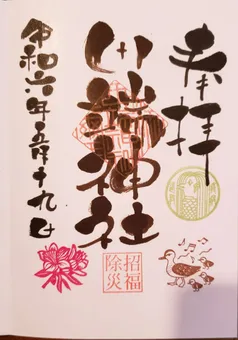 奉拝
神社
令和六年五月十九日
招福
除災